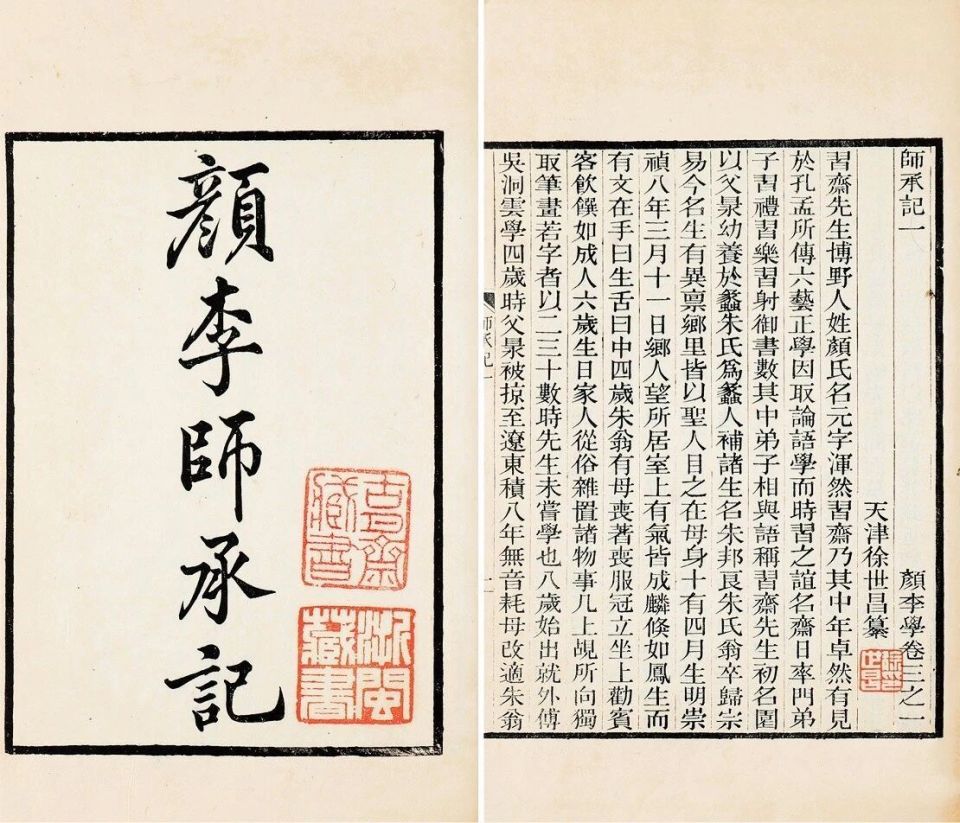 顏李師承記
浙閩藏書
師承記一　顏李學卷三之一
天津徐世昌纂
習齋先生博野人姓顏氏名元字渾然習齋乃其中年卓然有見
於孔孟所傳六藝正學因取論語學而時習之誼名齋日率門弟
子習禮習樂習射御書數其中弟子相與語稱習齋先生初名園
以父㫤幼養於蠡朱氏爲蠡人補諸生名朱邦良朱氏翁卒歸宗
易今名生有異稟鄉里皆以聖人目之在母身十有四月生明崇
禎八年三月十一日鄉人望所居室上有氣皆成麟倏如鳳生而
有文在手曰生舌曰中四歲朱翁有母喪著喪服冠立坐上勸賓
客飲饌如成人六歲生日家人從俗雜置諸物事几上覘所向獨
取筆畫若字者以二三十數時先生未嘗學也八歲始出就外傅
吳洞雲學四歲時父㫤被掠至遼東積八年無音耗母改適朱翁
師承記一